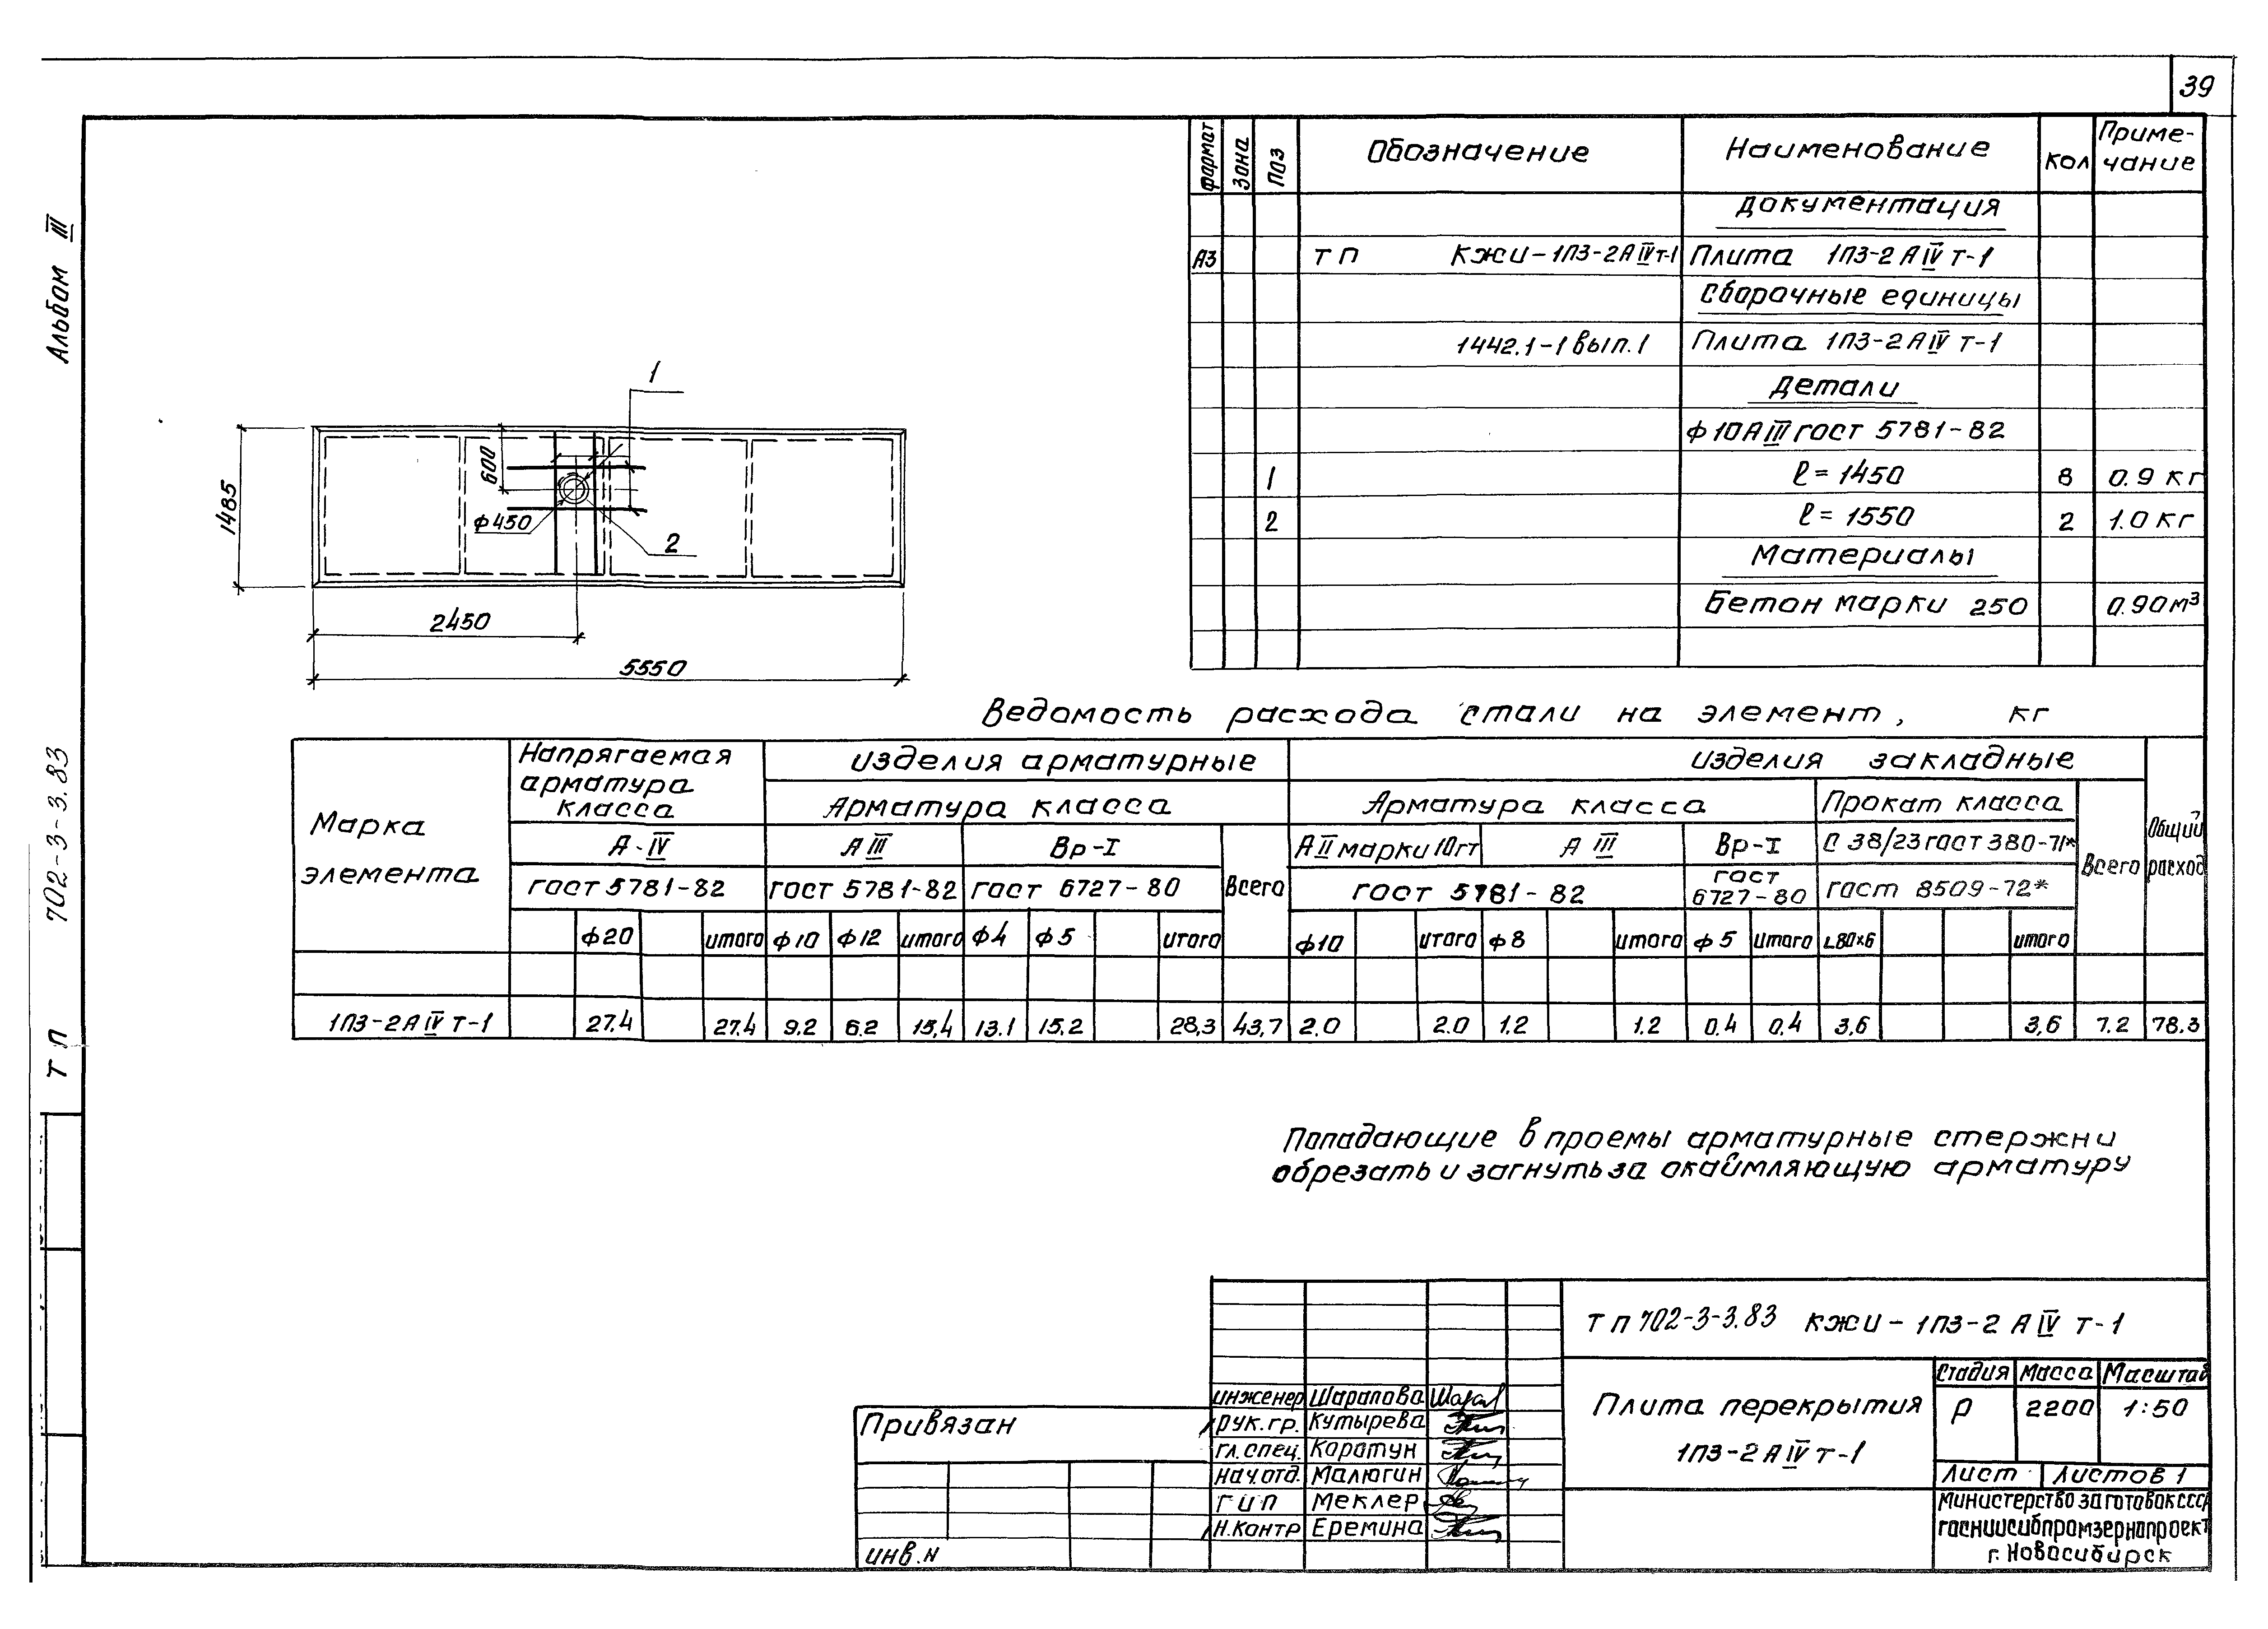 39
Альбом III
ТП 702-3-3.83
формат Зона Поз Обозначение Наименование Кол Приме-чание
Документация
А3 ТП КЖИ-1П3-2АIVт-1 Плита 1П3-2АIVт-1
Сборочные единицы
1442.1-1 вып.1 Плита 1П3-2АIVт-1
Детали
ф10АIII гост 5781-82
1 ℓ=1450 8 0.9 кг
2 ℓ=1550 2 1.0 кг
Материалы
Бетон марки 250 0.90м³
1
600
1485
ф450
2
2450
5550
Ведомость расхода стали на элемент, кг
Марка элемента
Напрягаемая арматура класса
изделия арматурные
изделия закладные
Общий расход
Арматура класса
Арматура класса
Прокат класса
А-IV АIII Вр-I Всего АII марки 10гт АIII Вр-I С 38/23 гост 380-71* Всего
гост 5781-82 гост 5781-82 гост 6727-80 гост 5781-82 гост 6727-80 гост 8509-72*
ф20 итого ф10 ф12 итого ф4 ф5 итого ф10 итого ф8 итого ф5 итого ∟80×6 итого
1П3-2АIVт-1 27.4 27.4 9.2 6.2 15,4 13.1 15.2 28,3 43,7 2.0 2.0 1.2 1.2 0.4 0,4 3,6 3,6 7.2 78.3
Попадающие в проемы арматурные стержни
обрезать и загнуть за окаймляющую арматуру
ТП 702-3-3.83 КЖИ-1П3-2АIVт-1
Плита перекрытия
1П3-2АIVт-1
Стадия Масса Масштаб
Р 2200 1:50
Лист Листов 1
министерство заготовок СССР
госниисибпромзернопроект
г. Новосибирск
инженер Шарапова
рук.гр. Кутырева
гл.спец. Коротун
нач.отд. Малюгин
ГИП Меклер
Н.контр Еремина
Привязан
инв.н